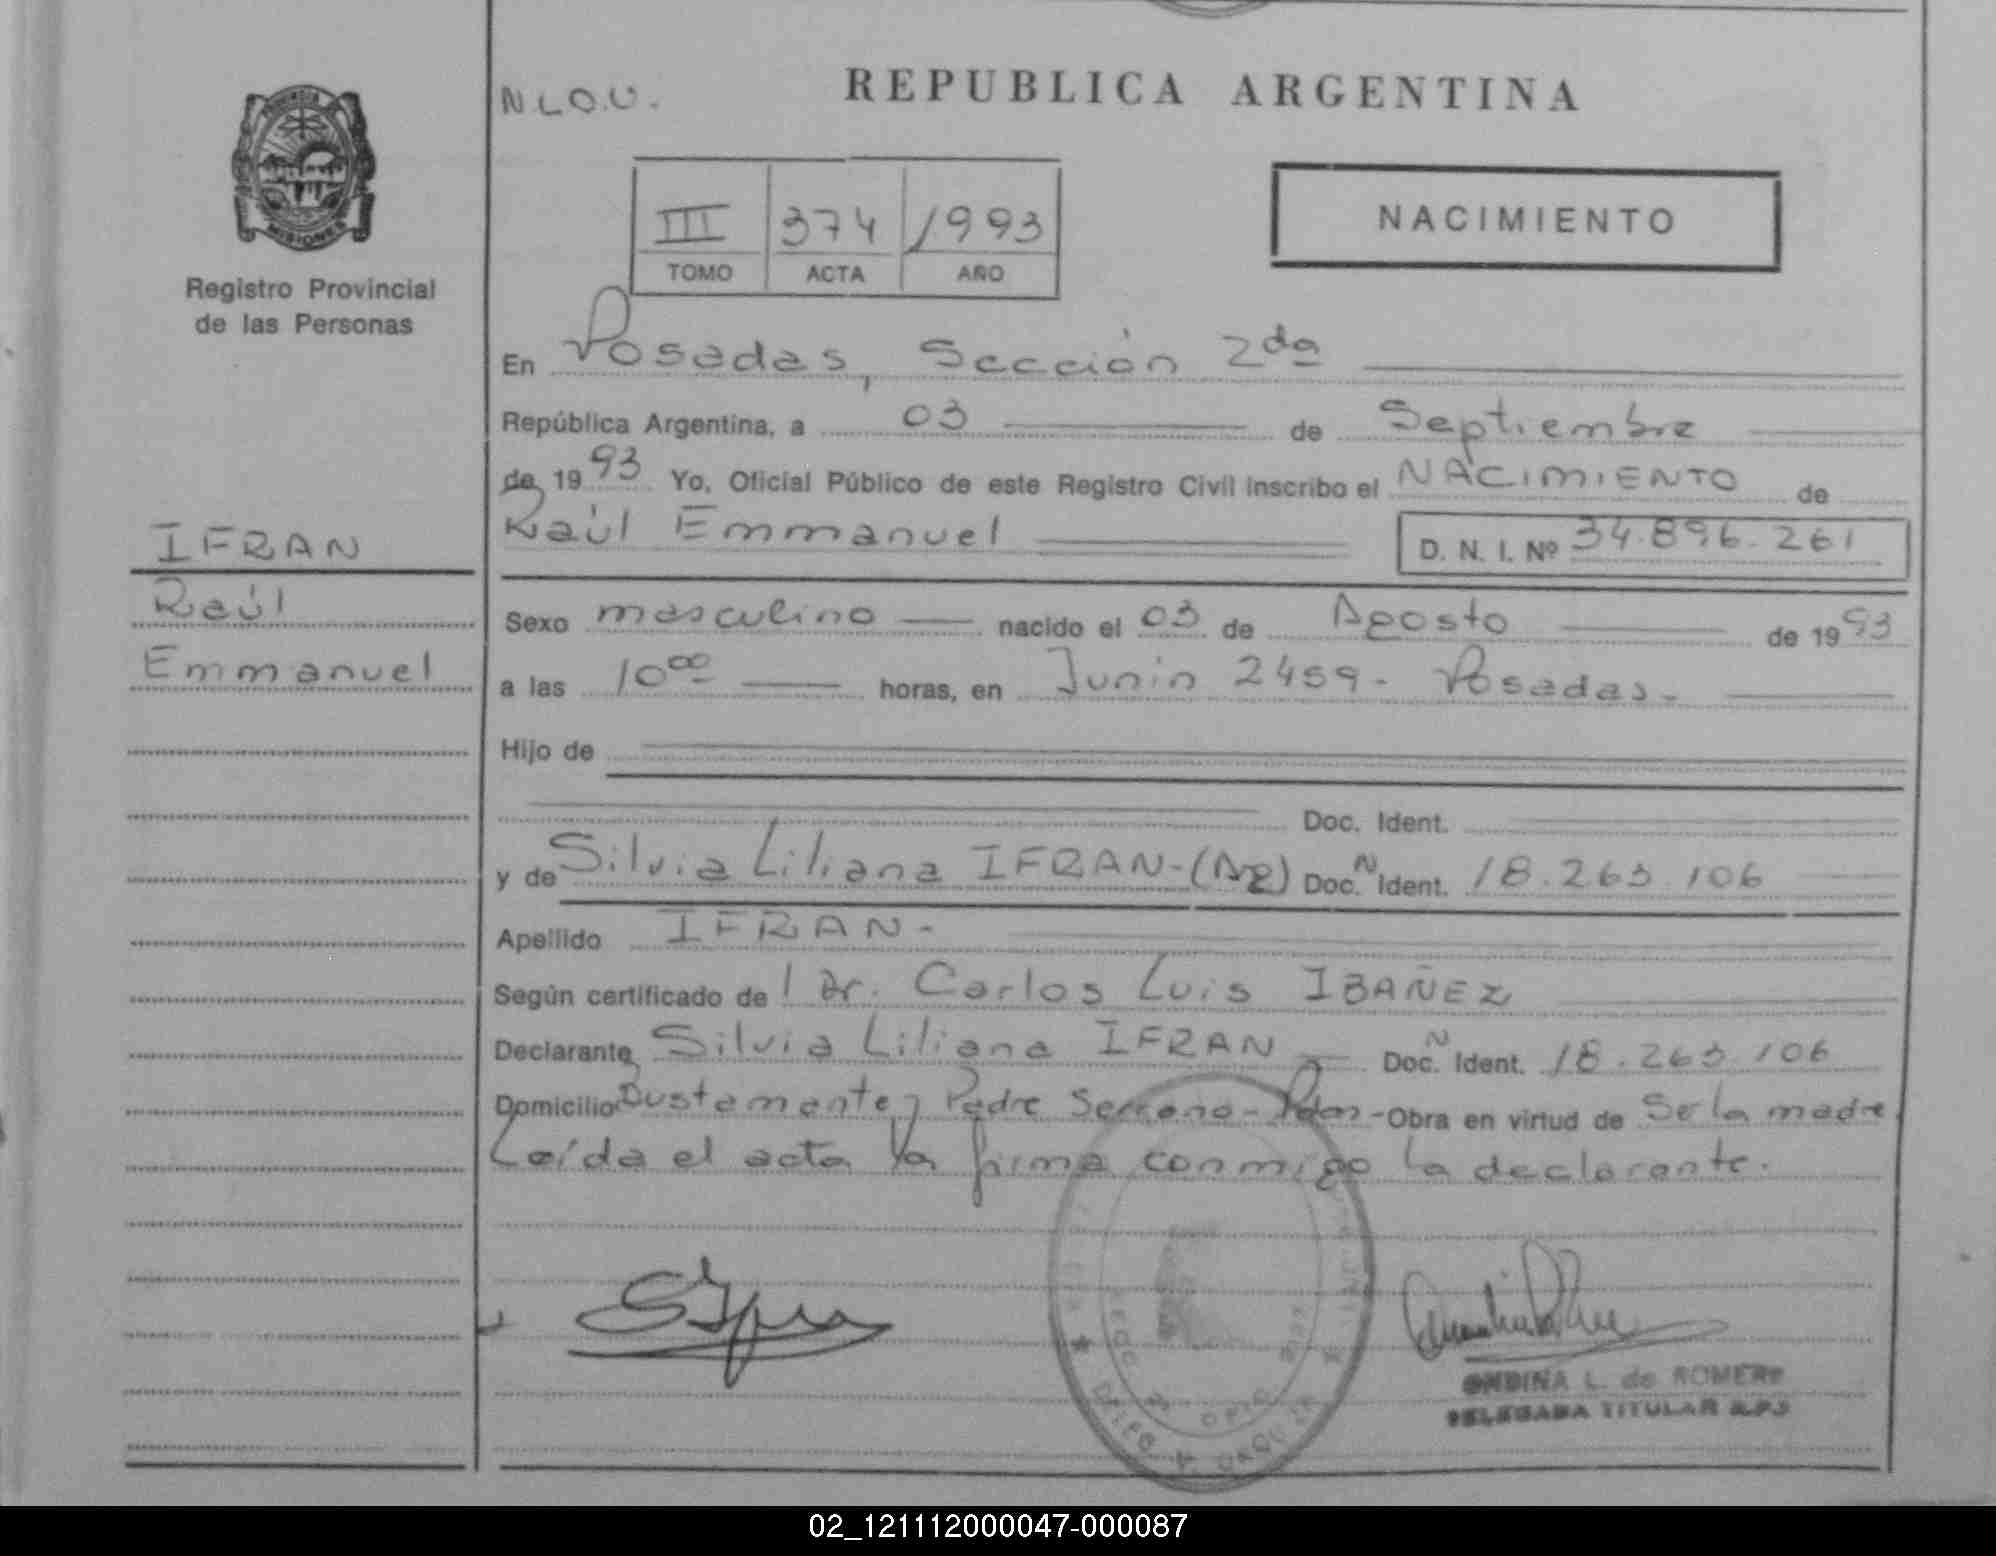 REPUBLICA ARGENTINA
N.L.O.U.
PROVINCIA
MISIONES
Registro Provincial
de las Personas
III 374 1993
TOMO ACTA AÑO
NACIMIENTO
En Posadas, Sección 2da
República Argentina, a 03 de Septiembre
de 1993 Yo, Oficial Público de este Registro Civil inscribo el NACIMIENTO de
Raúl Emmanuel D. N. I. Nº 34.896.261
IFRAN
Raúl
Emmanuel
Sexo masculino nacido el 03 de Agosto de 1993
a las 10 00 horas, en Junín 2459- Posadas-
Hijo de
Doc. Ident.
y de Silvia Liliana IFRAN-(Ar) Doc. N Ident. 18.263.106
Apellido IFRAN-
Según certificado de l Dr. Carlos Luis IBAÑEZ
Declarante Silvia Liliana IFRAN Doc. N Ident. 18.263.106
Domicilio Bustamante y Padre Serrano- Pdas-Obra en virtud de Ser la madre
Leída el acta la firma conmigo la declarante.
ONDINA L. de ROMERO
DELEGADA TITULAR R.P.
02_121112000047-000087